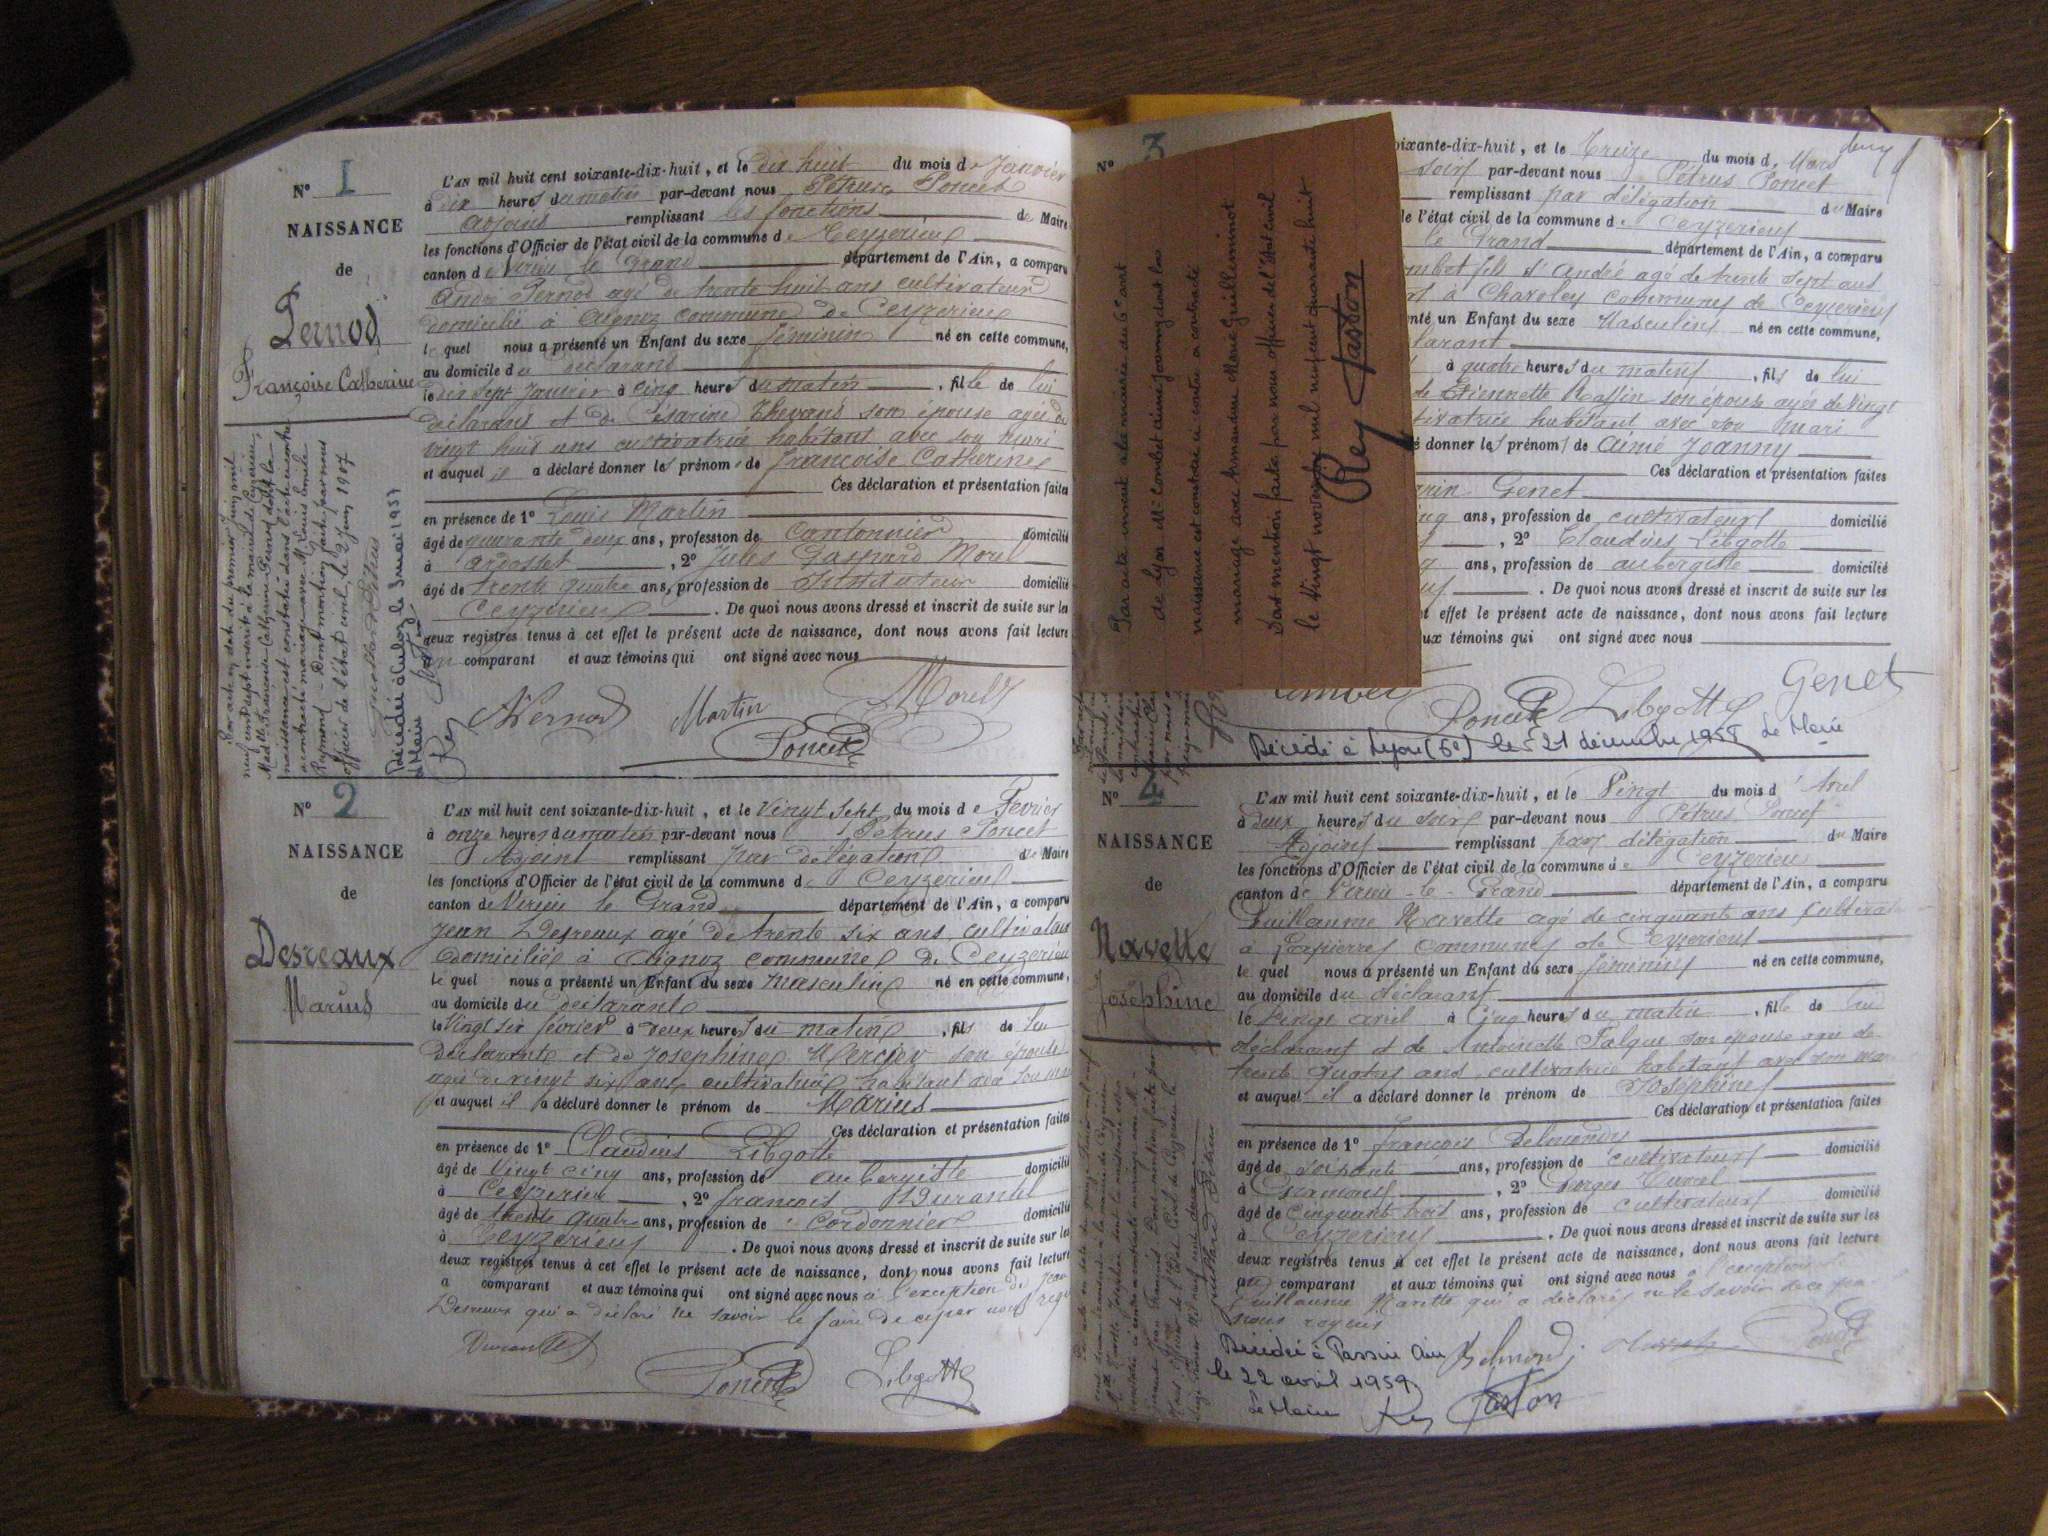 N° 1
NAISSANCE
de
Pernod
Françoise Catherine
L'AN mil huit cent soixante-dix-huit, et le dix huit du mois de Janvier
à dix heures du matin par-devant nous Pétrus Poncet
adjoint remplissant les fonctions de Maire
les fonctions d'Officier de l'état civil de la commune de Ceyzerieu
canton de Virieu le Grand département de l'Ain, a comparu
André Pernod agé de trente huit ans cultivateur
domicilié à Aignoz commune de Ceyzerieu
le quel nous a présenté un Enfant du sexe féminin né en cette commune,
au domicile du déclarant
le dix sept Janvier à cinq heures du matin, fille de lui
déclarant et de Césarine Thevant son épouse agée de
vingt huit ans cultivatrice habitant avec son mari
et auquel il a déclaré donner les prénoms de Françoise Catherine
Ces déclaration et présentation faites
en présence de 1° Louis Martin
âgé de quarante deux ans, profession de Cantonnier domicilié
à Ardosset, 2° Jules Gaspard Morel
âgé de trente quatre ans, profession de Instituteur domicilié
Ceyzerieu. De quoi nous avons dressé et inscrit de suite sur les
deux registres tenus à cet effet le présent acte de naissance, dont nous avons fait lecture
au comparant et aux témoins qui ont signé avec nous
APernod Martin Morel
Poncet
Par acte en date du premier Juin mil
neuf cent sept inscrit à la mairie de Ceyzerieu,
Madlle Françoise Catherine Pernod dont la
naissance est constatée dans l'acte ci-contre
a contracté mariage avec M. Louis Emile
Raymond - Dont mention faite par nous
officier de l'état civil, le 2 Juin 1907
Décédée à Culoz le 3 mai 1957
le Maire
Rey Gaston
N° 2
NAISSANCE
de
Desreaux
Marius
L'AN mil huit cent soixante-dix-huit, et le vingt sept du mois de Février
à onze heures du matin par-devant nous Pétrus Poncet
Adjoint remplissant par délégation de Maire
les fonctions d'Officier de l'état civil de la commune de Ceyzerieu
canton de Virieu le Grand département de l'Ain, a comparu
Jean Desreaux agé de trente six ans, cultivateur
domicilié à Aignoz commune de Ceyzerieu
le quel nous a présenté un Enfant du sexe masculin né en cette commune,
au domicile du déclarant
le vingt six février à deux heures du matin, fils de lui
déclarant et de Joséphine Mercier son épouse
agée de vingt six ans cultivatrice habitant avec son mari
et auquel il a déclaré donner le prénom de Marius
Ces déclaration et présentation faites
en présence de 1° Claudius Libgotte
âgé de vingt cinq ans, profession de aubergiste domicilié
à Ceyzerieu, 2° françois Durantet
âgé de trente quatre ans, profession de Cordonnier domicilié
à Ceyzerieu. De quoi nous avons dressé et inscrit de suite sur les
deux registres tenus à cet effet le présent acte de naissance, dont nous avons fait lecture
a comparant et aux témoins qui ont signé avec nous à l'exception de Jean
Desreaux qui a déclaré ne savoir le faire de ce par nous requis
Durantet
Poncet Libgotte
N° 3
soixante-dix-huit, et le Treize du mois de Mars
soir par-devant nous Pétrus Poncet
remplissant par délégation du Maire
de l'état civil de la commune de Ceyzerieu
le Grand département de l'Ain, a comparu
Combet fils d'André agé de trente sept ans
à Chavoley commune de Ceyzerieu
un Enfant du sexe Masculin né en cette commune,
déclarant
à quatre heures du matin, fils de lui
de Etiennette Raffin son épouse agée de vingt
cultivatrice habitant avec son mari
donner les prénoms de Aimé Joanny
Ces déclaration et présentation faites
Genet
ans, profession de cultivateur domicilié
, 2° Claudius Libgotte
ans, profession de aubergiste domicilié
. De quoi nous avons dressé et inscrit de suite sur les
effet le présent acte de naissance, dont nous avons fait lecture
aux témoins qui ont signé avec nous
Combet Poncet Libgotte Genet
Décédé à Lyon (6e) le 21 décembre 1958 Le Maire
Par acte inscrit à la mairie du 6e arrt
de Lyon Mr Combet aimé Joanny dont la
naissance est constatée ci-contre a contracté
mariage avec Armandine Marie Guilleminot
Dont mention faite par nous officier de l'Etat civil
le vingt novembre mil neuf cent quarante huit
Rey Gaston
N° 4
NAISSANCE
de
Navette
Joséphine
L'AN mil huit cent soixante-dix-huit, et le Vingt du mois d'Avril
à deux heures du soir par-devant nous Pétrus Poncet
Adjoint remplissant par délégation du Maire
les fonctions d'Officier de l'état civil de la commune de Ceyzerieu
canton de Virieu-le-Grand département de l'Ain, a comparu
Guillaume Navette agé de cinquante ans cultivateur
à commune de Ceyzerieu
le quel nous a présenté un Enfant du sexe féminin né en cette commune,
au domicile du déclarant
le Vingt avril à cinq heures du matin, fille de lui
déclarant et de Antoinette Falque son épouse agée de
trente quatre ans, cultivatrice habitant avec son mari
et auquel il a déclaré donner le prénom de Joséphine
Ces déclaration et présentation faites
en présence de 1° François Belmondy
âgé de soixante ans, profession de cultivateur domicilié
à, 2°
âgé de cinquante trois ans, profession de cultivateur domicilié
à Ceyzerieu. De quoi nous avons dressé et inscrit de suite sur les
deux registres tenus à cet effet le présent acte de naissance, dont nous avons fait lecture
au comparant et aux témoins qui ont signé avec nous à l'exception de
Guillaume Navette qui a déclaré ne le savoir de ce par
nous requis
Belmondy Poncet
Décédée à Passin Ain
le 22 avril 1959
Le Maire Rey Gaston